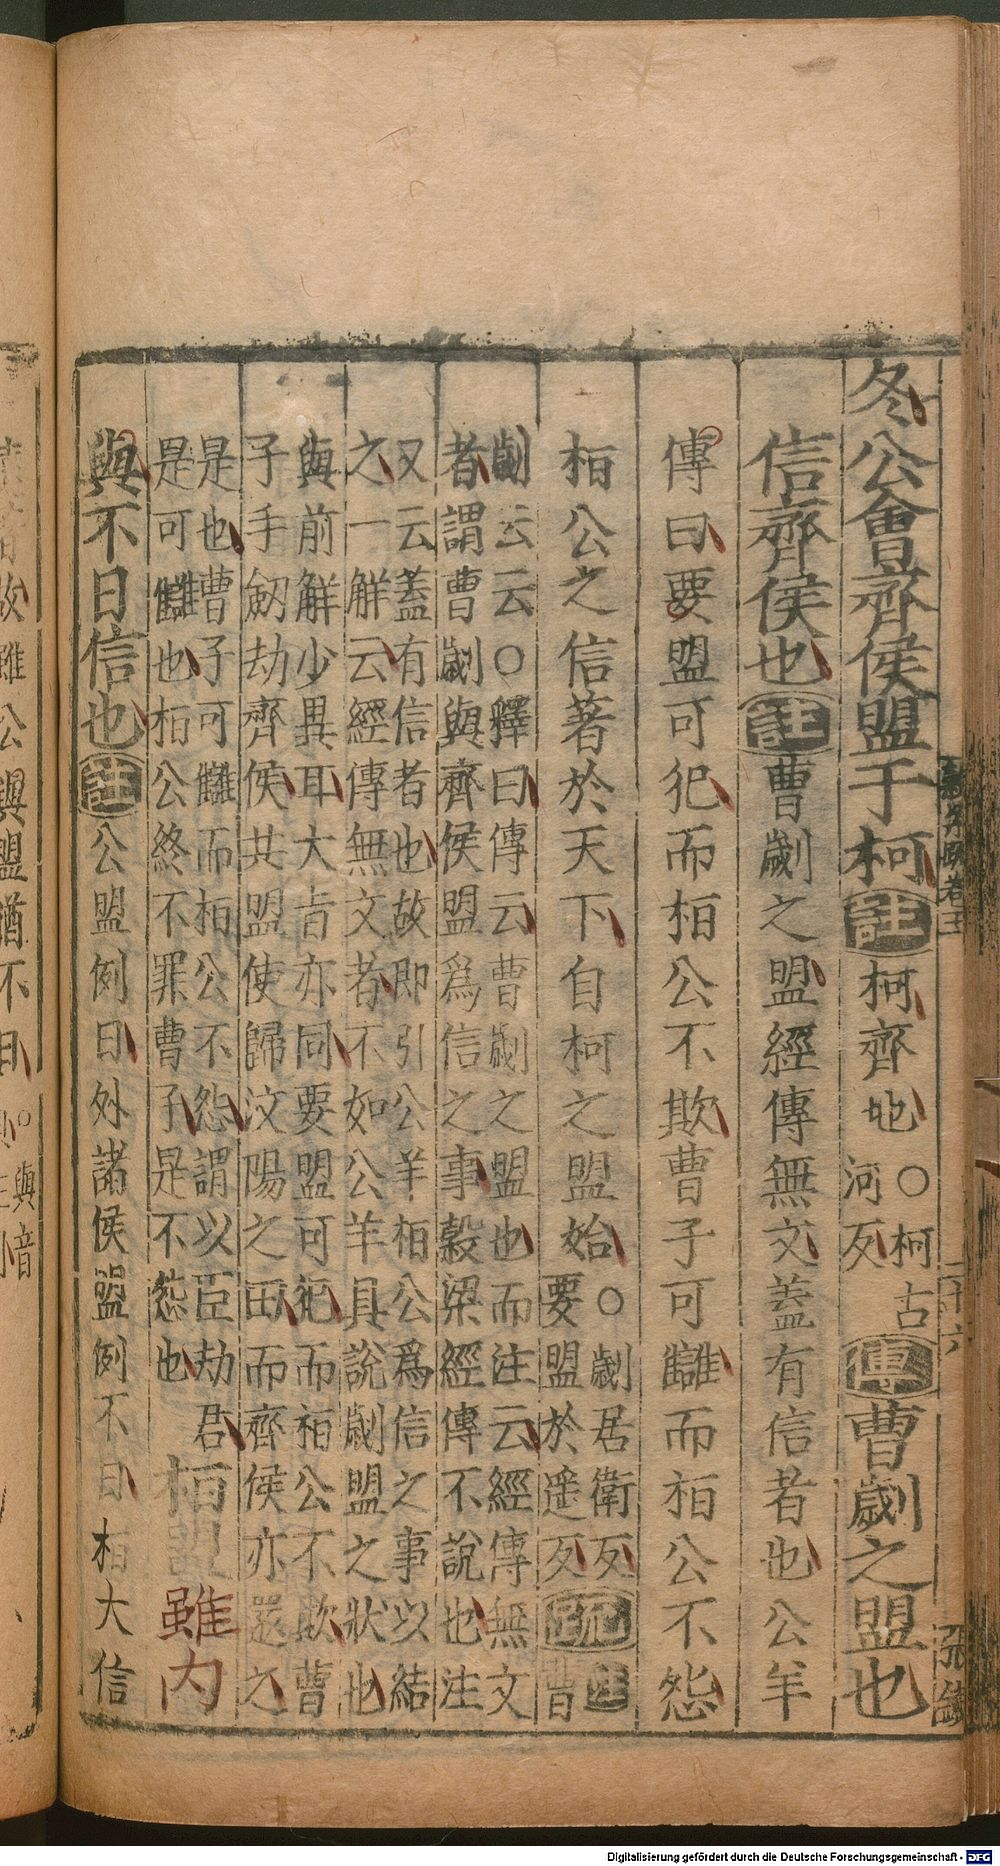 冬公會齊侯盟于柯註柯齊地○柯古河反傳曹劌之盟也
信齊侯也註曹劌之盟經傳無文蓋有信者也公羊
傳曰要盟可犯而栢公不欺曹子可讎而栢公不怨
栢公之信著於天下自柯之盟始○劌居衛反要盟於遥反疏註曹
劌云云○釋曰傳云曹劌之盟也而注云經傳無文
者謂曹劌與齊侯盟爲信之事穀梁經傳不說也注
又云蓋有信者也故即引公羊栢公爲信之事以結
之一解云經傳無文者不如公羊具說劌盟之狀也
與前解少異耳大旨亦同要盟可犯而栢公不欺曹
子手劒劫齊侯共盟使歸汶陽之田而齊侯亦還之
是也曹子可讎而栢公不怨謂以臣劫君
是可讎也栢公終不罪曹子是不怨也
栢盟雖内
與不日信也註公盟例日外諸侯盟例不日栢大信
二十六
Digitalisierung gefördert durch die Deutsche Forschungsgemeinschaft - DFG